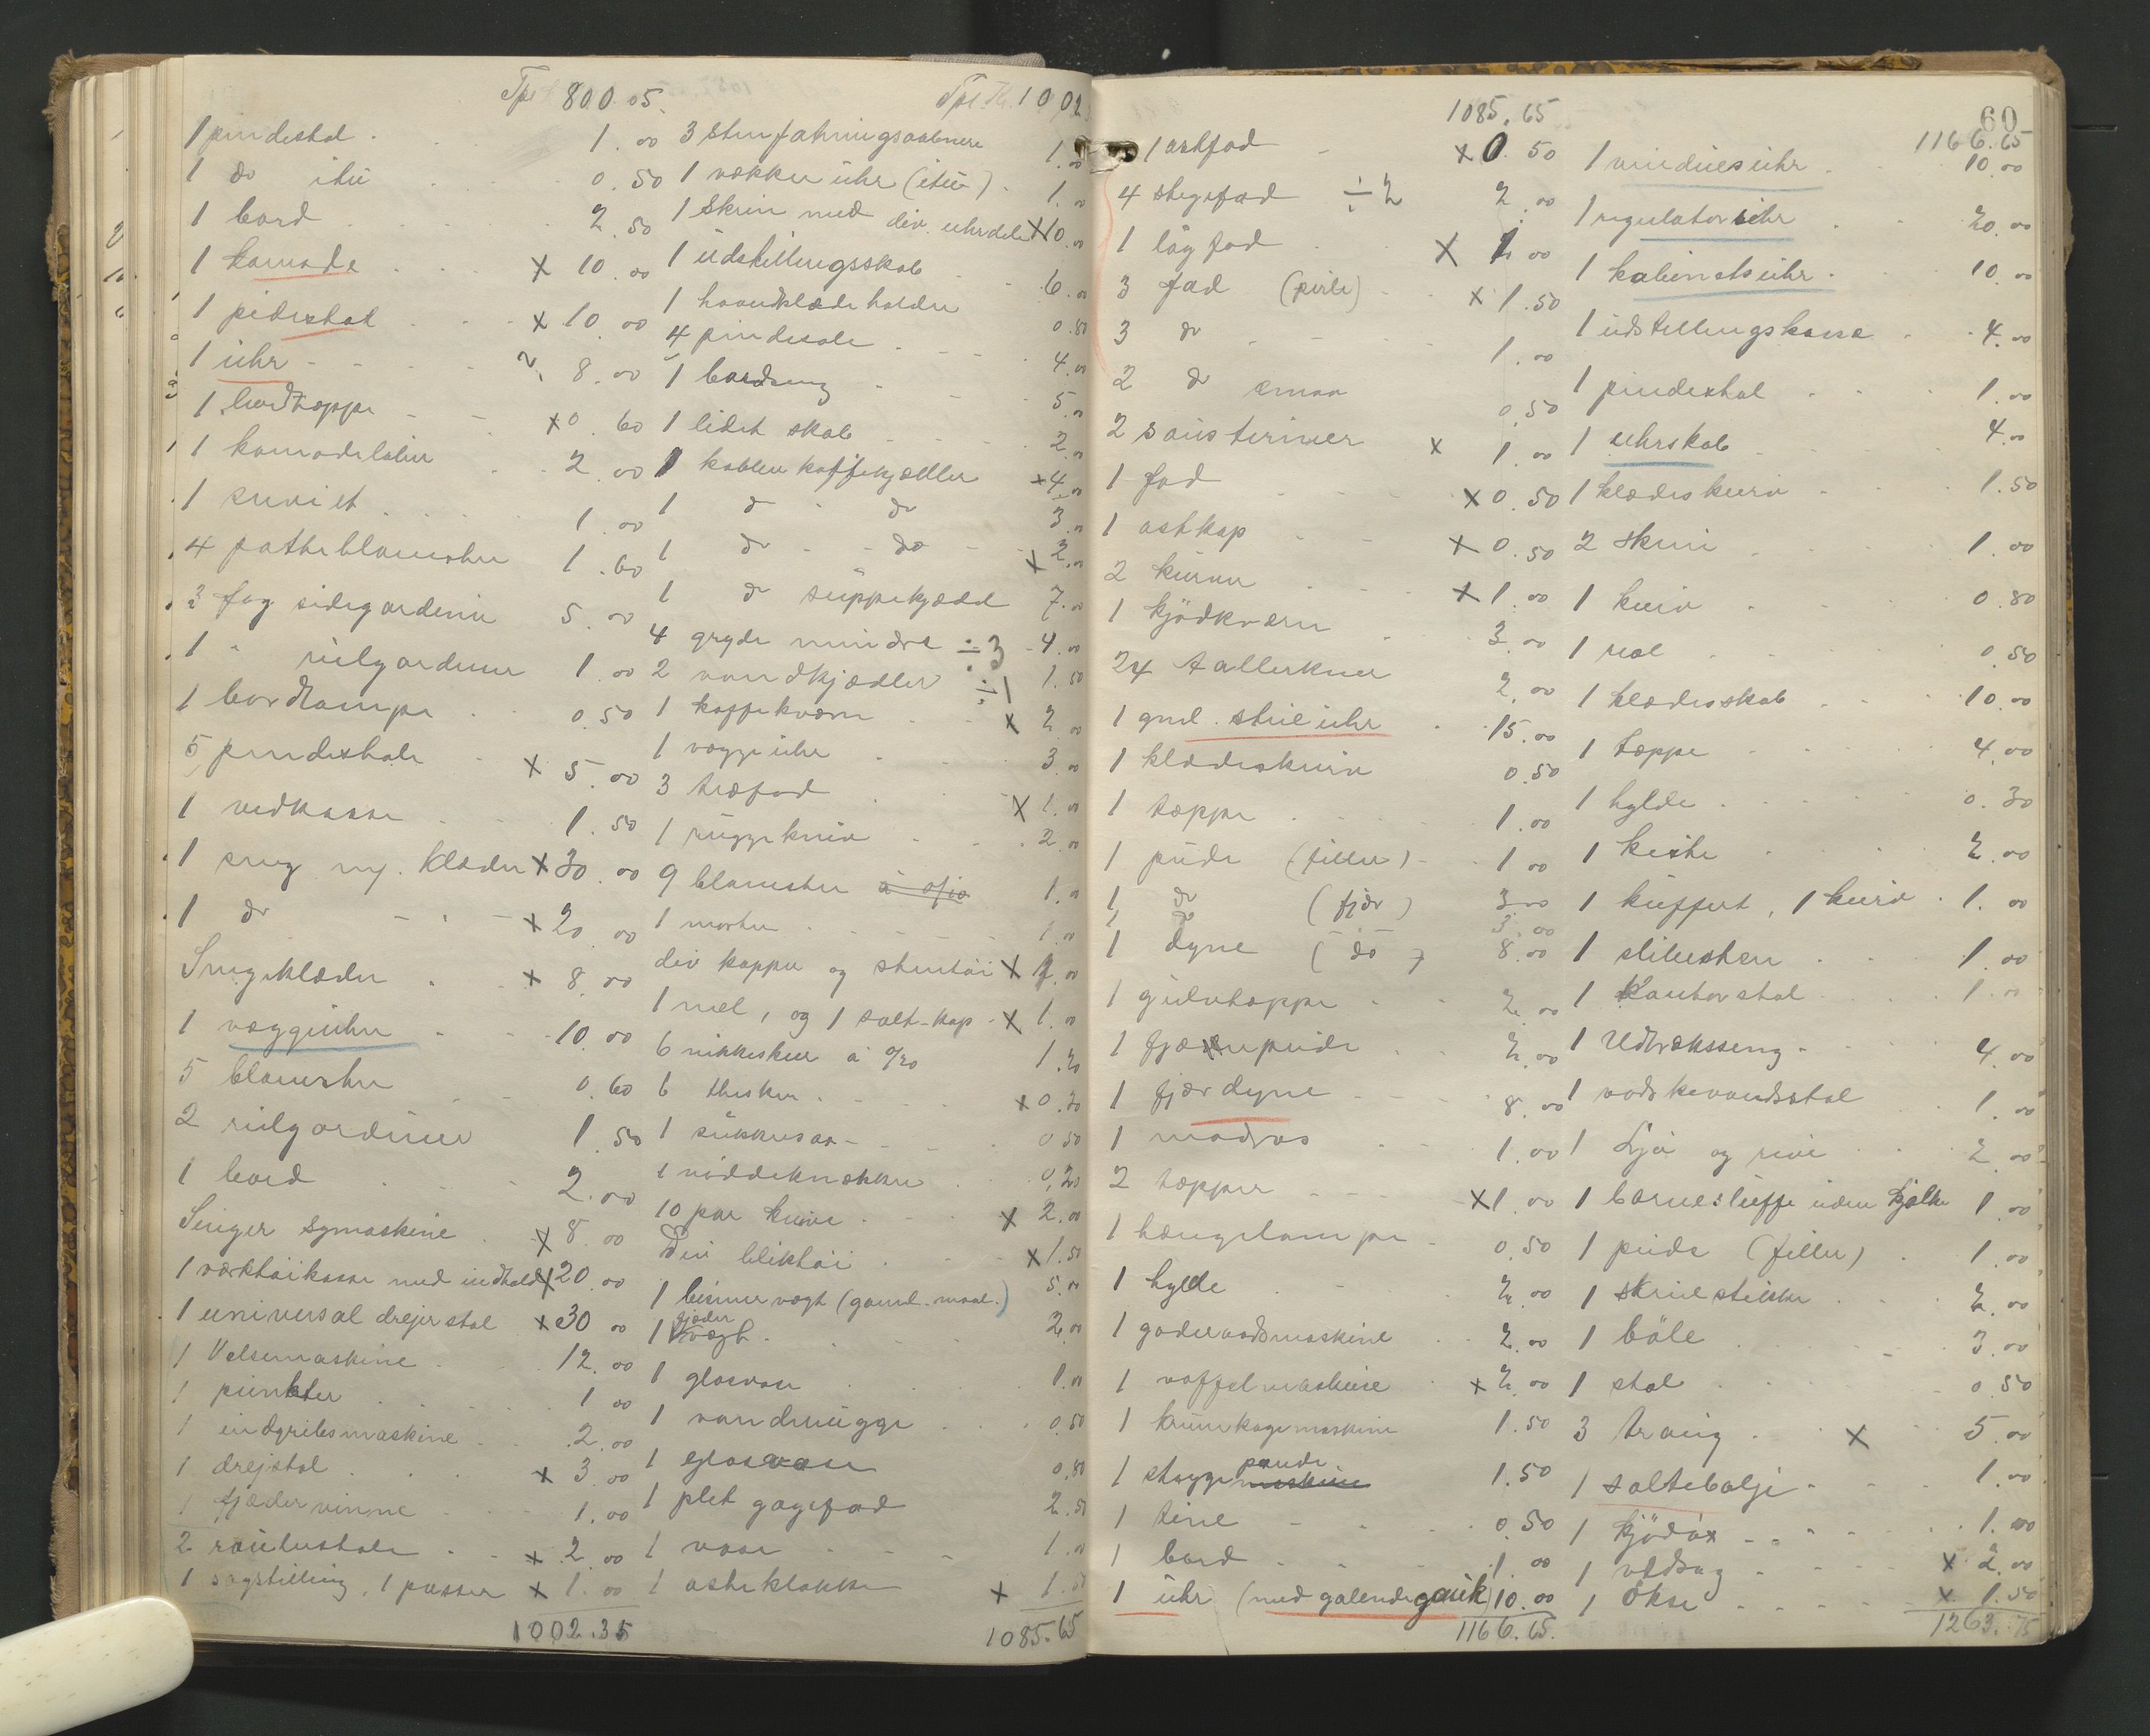 Tpt 800.05.
1 pindestol . 1.00
1 do itu 0.50
1 bord 2.50
1 komode x 10.00
1 pidestal x 10.00
1 uhr 8.00
1 bordtæppe x 0.60
1 komodeløber 2.00
1 serviet 1.00
4 potteblomster 1.60
3 fag sidegardiner 5.00
1 " rulgardiner 1.00
1 bordlampe 0.50
5 pindestole x 5.00
1 vedkasse 1.50
1 seng m/. klæder x 30.00
1 do x 20.00
Sengeklæder x 8.00
1 vægguhr 10.00
5 blomster 0.60
2 rulgardiner 1.50
1 bord 2.00
Singer symaskine x 8.00
1 værktøikasse med indhold x 20.00
1 universal drejerstol x 30.00
1 Velsemaskine 12.00
1 punkter 1.00
1 indgribsmaskine 2.00
1 drejstol x 3.00
1 fjædervinne 1.00
2 x 2.00
1 sagstilling, 1 passer x 1.00
1002.35
Tpt. Kr. 1002
3 1.00
1 vækkeruhr (itu) 1.00
1 Skrin med div. uhrdele x 10.00
1 udstillingsskab 6.00
1 haandklædeholder 0.80
4 pindestole 4.00
1 bordseng 5.00
1 lidet skab 2.00
1 kobber kaffekjædler x 4.00
1 do do 3.00
1 do do x 2.00
1 do suppekjædel 7.00
4 gryde mindre ÷3 4.00
2 vandkjædler ÷1 1.50
1 kaffekværn x 2.00
1 vægguhr 3.00
3 træfad x 1.00
1 ruggekniv 2.00
9 blomster 1.00
1 morter 1.00
div kopper og stentøi x 7.00
1 mel, og 1 salt-kop x 1.00
6 nikkeskeer á 0/20 1.20
6 theskeer x 0.30
1 sukkersax 0.50
1 nøddeknækker 0,20
10 par knive x 2.00
Div bliktøi x 1.50
1 bismervægt (gaml. maal.) 5.00
1 fjæder vægt 2.00
1 glasvase 1.00
1 vandmugge 0.50
1 glasvase 0.80
1 plet gagefad 2.50
1 vase 1.00
1 osteklokke x 1.50
1085.65
1085.65
1 ostfad x 0.50
4 stegefad ÷2 2.00
1 løgfad x 1.00
3 fad (perle) x 1.50
3 do 1.00
2 do smaa 0.50
2 sausteriner x 1.00
1 fad x 0.50
1 ostkop x 0.50
2 kurver x 1.00
1 kjödkværn 3.00
24 tallerkner 2.00
1 gml. stueuhr 15.00
1 klædeskurv 0.50
1 tæppe 1.00
1 pude (filler) 1.00
1 do (fjdr) 3.00
1 do 3.00
1 dyne (do) 8.00
1 gulvtæppe 2.00
1 fjærpude 2.00
1 fjærdyne 8.00
1 madras 1.00
2 tæpper x 1.00
1 hængelampe 0.50
1 hylde 2.00
1 goderaadsmaskine 2.00
1 vaffelmaskine x 2.00
1 krumkagemaskine 1.50
1 stegge pande 1.50
1 tine 0.50
1 bord 1.00
1 uhr (med galende gauk) 10.00
1166.65.
60
1166.65
1 vinduesuhr 10.00
1 regulatoruhr 20.00
1 kabinetsuhr 10.00
1 udstillingskasse 4.00
1 pindestol 1.00
1 uhrskab 4.00
1 klædeskurv 1.50
2 skrin 1.00
1 kurv 0.80
1 reol 0.50
1 klædesskab 10.00
1 tæppe 4.00
1 hylde 0.30
1 kiste 2.00
1 kuffert, 1 kurv 1.00
1 slibesten 1.00
1 Kontorstol 1.00
1 Udtræksseng 4.00
1 vaskevandsstol 1.00
1 Ljå og rive 2.00
1 barnesluffe uden kjelke 1.00
1 pude (filler) 1.00
1 skruestikke 2.00
1 båle 3.00
1 stol 0.50
3 traug x 5.00
1 saltebalje 1.00
1 kjödöx 1.00
1 vedsag x 2.00
1 Økse x 1.50
1263.75